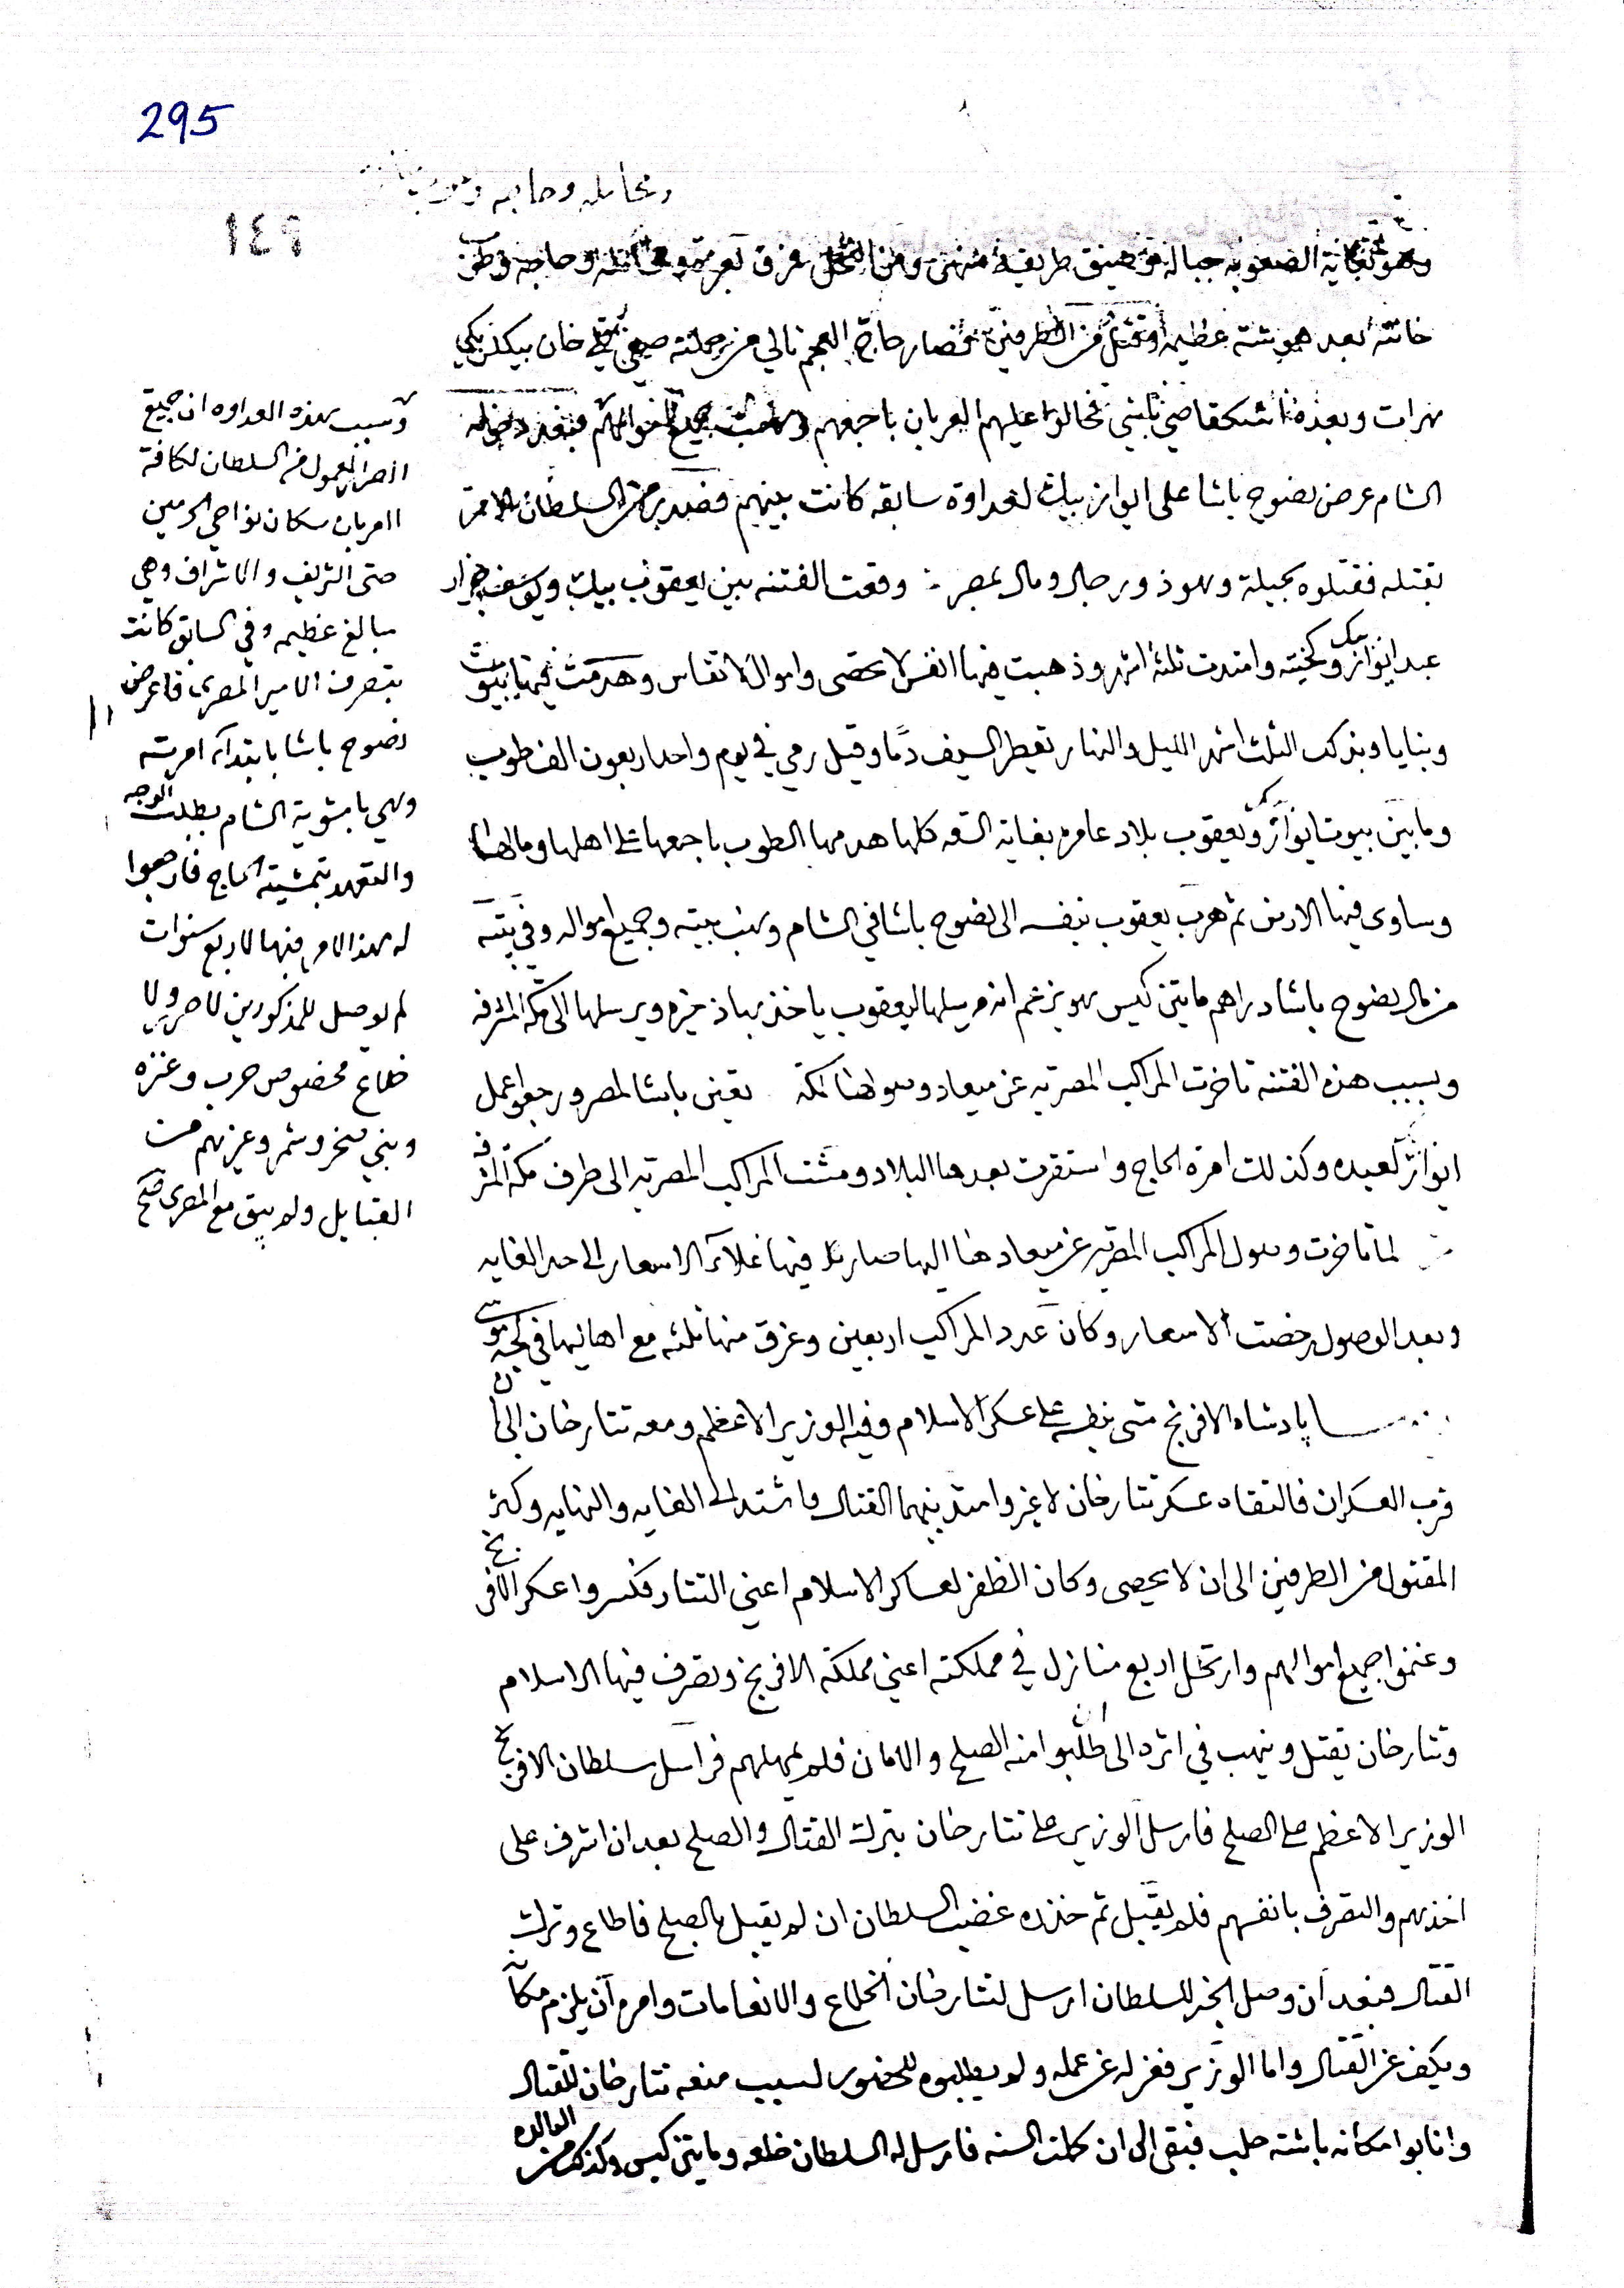 295
١٤٩
خاتته بعد هوشة عظيمة وقتل من الطرفين فصار حاج العجم تالي من جملته صيفي قلي خان بيكلربيكي
هرات وبعده فحالوا عليهم العربان باجمعهم ونهبت جميع اموالهم فبعد دخوله
الشام عرض نصوح باشا على ايواز بيك لعداوة سابقه كانت بينهم فصدر من السلطان الامر
بقتله فقتلوه بحيلة وهو ذو رجال ومال بمصر وقعت الفتنه بين يعقوب بيك ويوسف جزار
عبد ايواز بيك وكخيته وامتدت ثلثة اشهر وذهبت فيها انفس لا تحصى واموال لا تقاس وهدمت فيها بيوت
وبنايا وبتركب الثلث اشهر الليل والنهار تقطر السيف دمًا وقيل رمي في يوم واحد اربعون الف طوب
وما بين بيوت ايواز بيك ويعقوب بلاد عامره بغاية السعه كلها هدمها الطوب باجمعها على اهلها ومالها
وساوى فيها الارض ثم هرب يعقوب بنفسه الى نصوح باشا في الشام ونهب بيته وجميع امواله وفي بيته
من مال نصوح باشا دراهم مايتين كيس هو يزعم انه مرسلها ليعقوب ياخذ بها ذخيره ويرسلها الى مكة المشرفه
وبسبب هذه الفتنه تاخرت المراكب المصريه عن ميعاد وصولها لمكة تعين باشا لمصر ورجعوا عمل
ايواز لعبده وكذلك امرة الحاج واستقرت بعدها البلاد ومشت المراكب المصريه الى طرف مكة المشرفه
لما تاخرت وصول المراكب المصريه عن ميعادها اليها صار فيها غلاء الاسعار الى حد الغايه
وبعد الوصول رخصت الاسعار وكان عدد المراكب اربعين وغرق منها ثلثه مع اهاليها في لجة
پادشاه الافرنج مشى بنفسه على عسكر الاسلام وفيه الوزير الاعظم ومعه تتار خان الى ان
قرب العسكران فالتقاه عسكر تتار خان لا غير وامتد بينهما القتال واشتد الى الغايه والنهايه وكثر
المقتول من الطرفين الى ان لا يحصى وكان الظفر لعساكر الاسلام اعني التتار فكسروا عسكر الافرنج
وغنموا جميع اموالهم وارتحل اربع منازل في مملكته اعني مملكة الافرنج وتصرف فيها الاسلام
وتتار خان يقتل وينهب في اثره الى ان طلبوا منه الصلح والامان فلم يمهلهم فراسل سلطان الافرنج
الوزير الاعظم على الصلح فارسل الوزير على تتار خان بترك القتال والصلح بعد ان اشرف على
اخذهم والتصرف بانفسهم فلم يقبل ثم حذره غضب السلطان ان لم يقبل بالصلح فاطاع وترك
القتال فبعد ان وصل الخبر للسلطان ارسل لتتار خان الخلاع والانعامات وامره ان يلزم مكانه
ويكف عن القتال واما الوزير فعزله عن عمله ولم يطلبوه للحضور لسبب منعه تتار خان للقتال
وانابوا مكانه باشة حلب فبقى الى ان كملت السنه فارسل له السلطان خلعه ومايتين كيس وكذلك من الوالده
وسبب هذه العداوه ان جميع
الصرر المعمول من السلطان لكافة
العربان سكان نواحي الحرمين
حتى الشريف والاشراف وهي
مبالغ عظيمه وفي السابق كانت
بتصرف الامير المصري فاعرض
نصوح باشا بابتداء امرته
وهي باشوية الشام بطلب الوجه
والتعهد بتمشية الحاج فارجعوا
له هذا الامر فيها لاربع سنوات
لم يوصل للمذكورين لا صر ولا
خلاع مخصوص حرب وعنزه
وبني صخر وشمر وغيرهم من
القبايل ولم يبق مع المصري صح